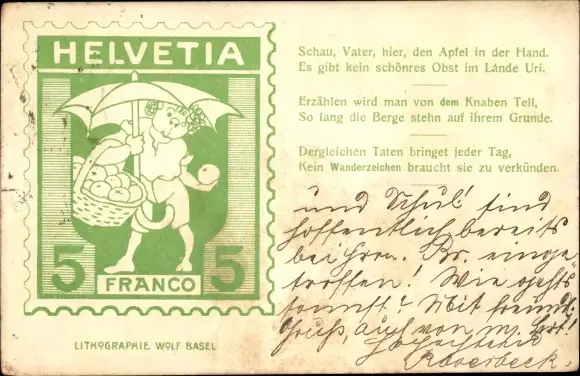 HELVETIA
5 FRANCO 5
LITHOGRAPHIE WOLF BASEL
Schau, Vater, hier, den Apfel in der Hand.
Es gibt kein schönres Obst im Lande Uri.
Erzählen wird man von dem Knaben Tell,
So lang die Berge stehn auf ihrem Grunde.
Dergleichen Taten bringet jeder Tag,
Kein Wanderzeichen braucht sie zu verkünden.
und Schul! sind
hoffentlich bereits
bei Hrn. Br. einge-
troffen! Wie gehts
sonst? Mit freundl.
Gruß, auch von m.
Roverbeck.